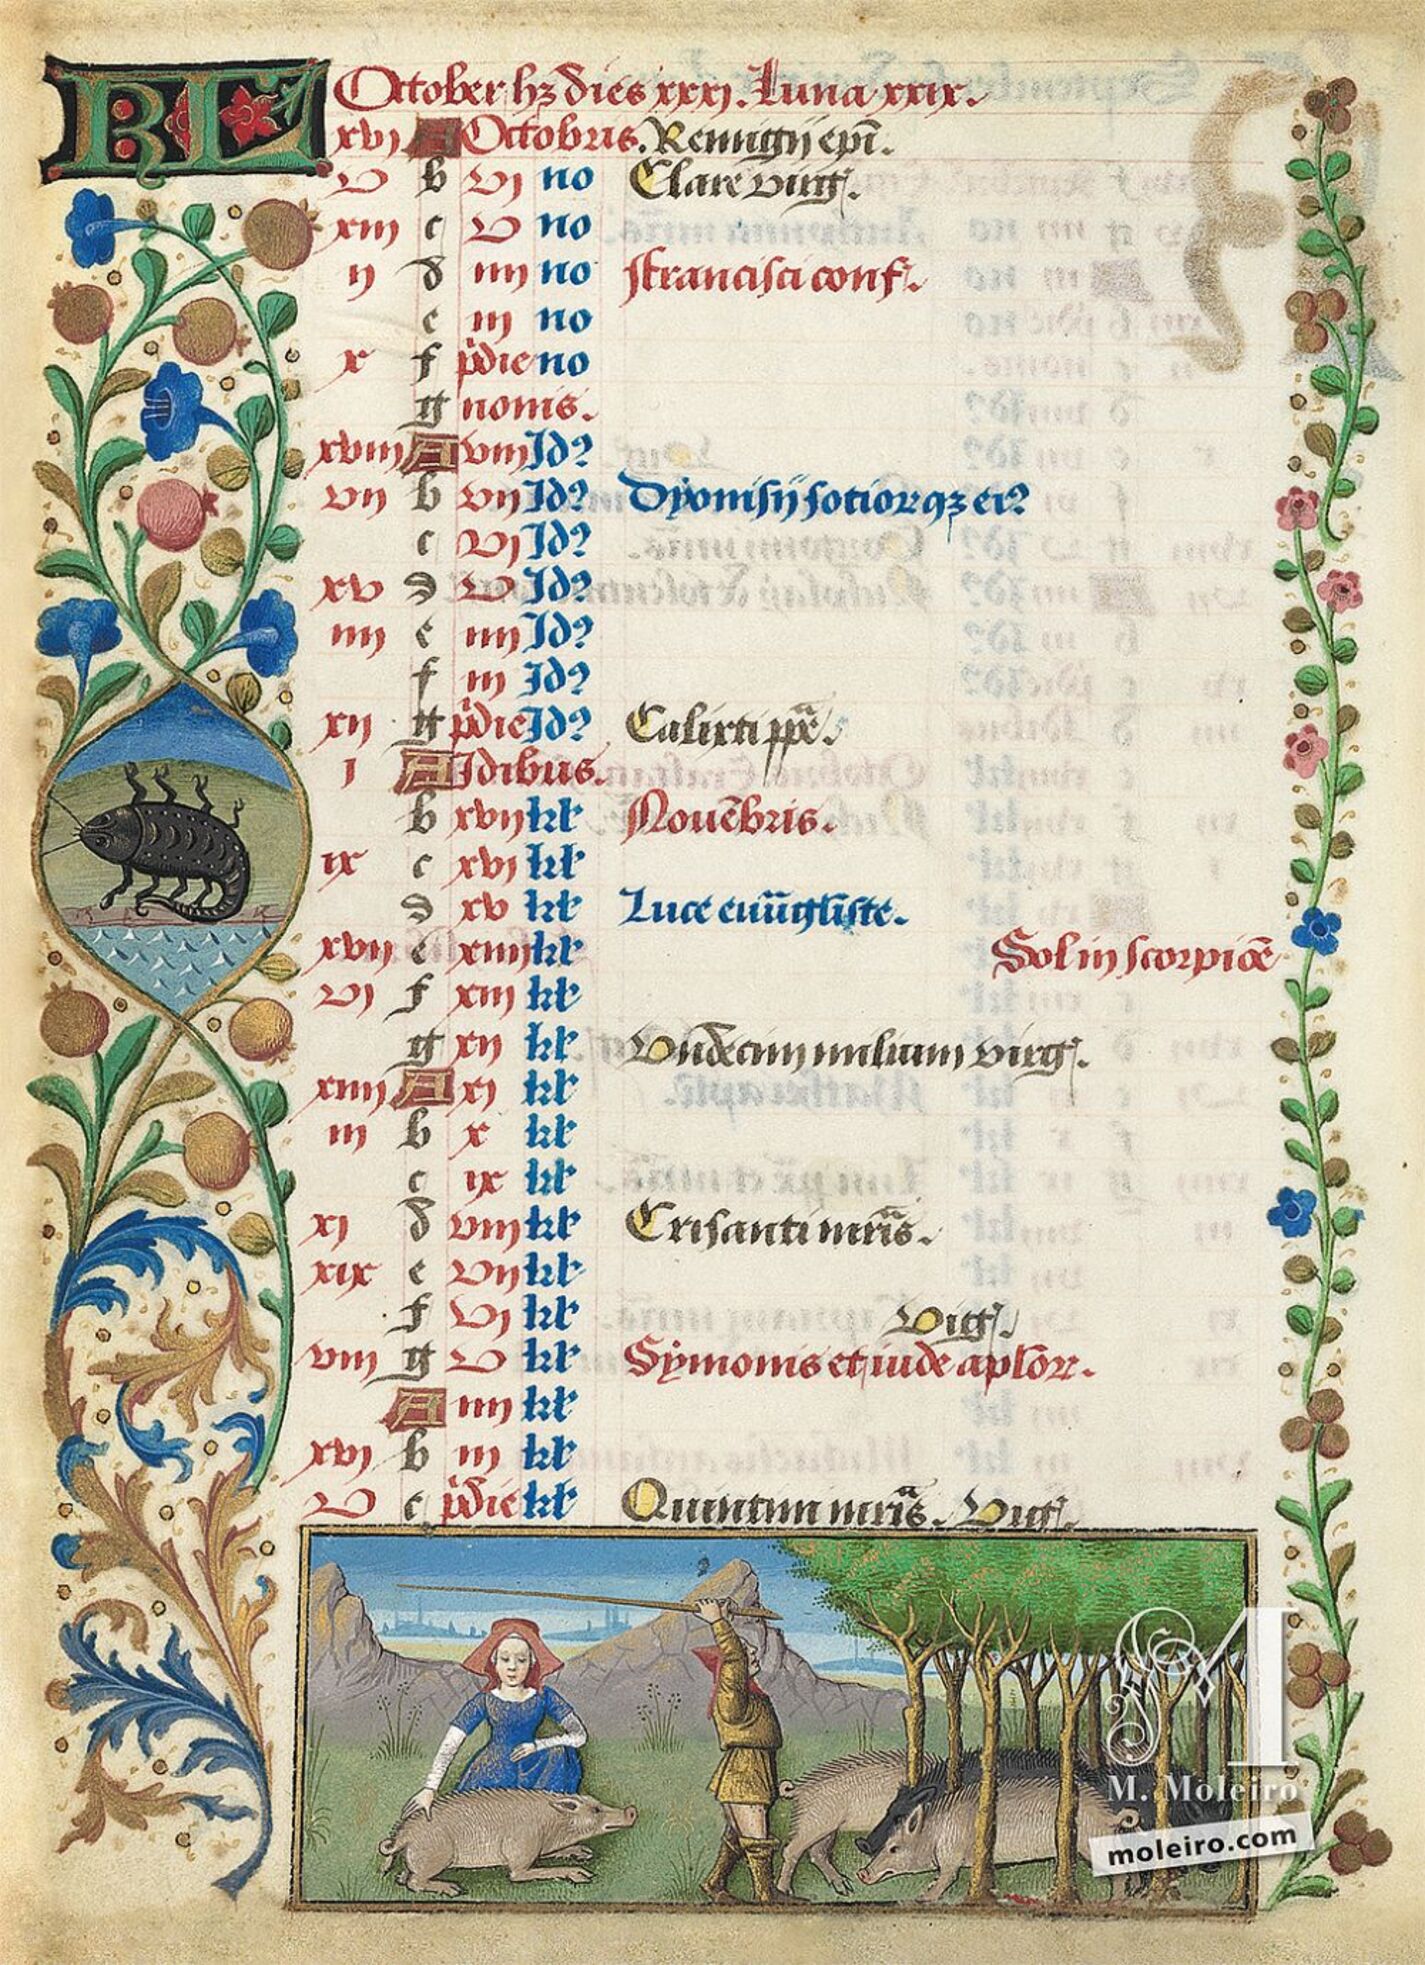 KL October hz dies xxxj. Luna xxix.
xvj A Octobris. Remigij epi.
v b vj no Clare virg.
xiij c v no
ij d iiij no ffrancisci conf.
e iij no
x f pdie no
g nonis.
xviij A viij Id?
vij b vij Id? Dyonisij sotiorqz ei?
c vj Id?
xv d v Id?
iiij e iiij Id?
f iij Id?
xij g pdie Id? Calixti ppe.
j A Idibus.
b xvij kl Nouebris.
ix c xvj kl
d xv kl Luce euugliste.
xvij e xiiij kl Sol in scorpioe
vj f xiij kl
g xij kl Vndecim milium virg.
xiiij A xj kl
iij b x kl
c ix kl
xj d viij kl Crisanti mris.
xix e vij kl
f vj kl Vig.
viij g v kl Symonis et iude aplor.
A iiij kl
xvj b iij kl
v c pdie kl Quintini mris. Vig.
M
M. Moleiro
moleiro.com